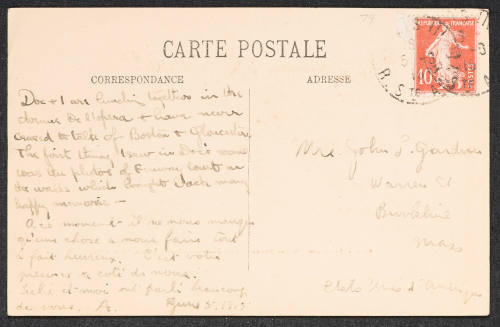 CARTE POSTALE
CORRESPONDANCE
ADRESSE
RÉPUBLIQUE FRANÇAISE
10
POSTES
Doc & I are lunching together in the
de l'Opera & have never
ceased to talk of Boston & Gloucester
The first thing I saw in Doc's room
was the photos of court on
the which brought back many
happy memories —
A ce moment il ne nous manque
qu'une chose à nous faire tout
à fait heureux. C'est votre
presence à coté de nous.
et moi ont parlé beaucoup
de vous. A. June 5
Mrs. John L. Gardner
Warren St
Brookline
Mass
Etats Unis d'Amerique